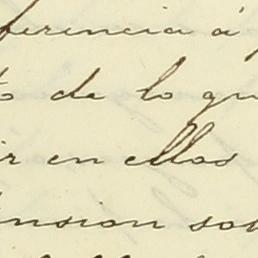 ferencia á
to de lo qu
ir en ellos
ension sob